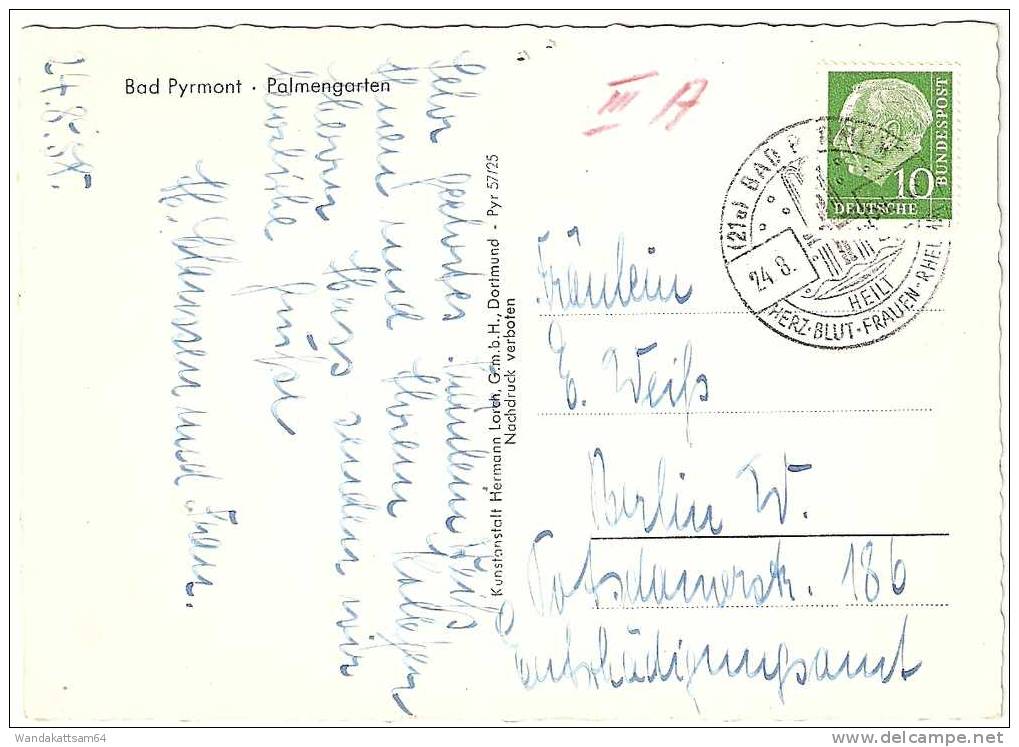 Bad Pyrmont · Palmengarten
24.8.57.
Sehr geehrtes Fräulein Weiß
Ihnen und Ihrem
Herrn senden wir
herzliche Grüße
H. und Frau.
Kunstanstalt Hermann Lorch, G.m.b.H., Dortmund - Pyr 57/25
Nachdruck verboten
III A
DEUTSCHE BUNDESPOST
10
(21a) BAD PYRMONT
24.8.
HEILT
HERZ·BLUT·FRAUEN-RHEUMA
Fräulein
E. Weiß
Berlin W.
Potsdamerstr. 186
Entschädigungsamt
Wandakattsam64
delcampe.net